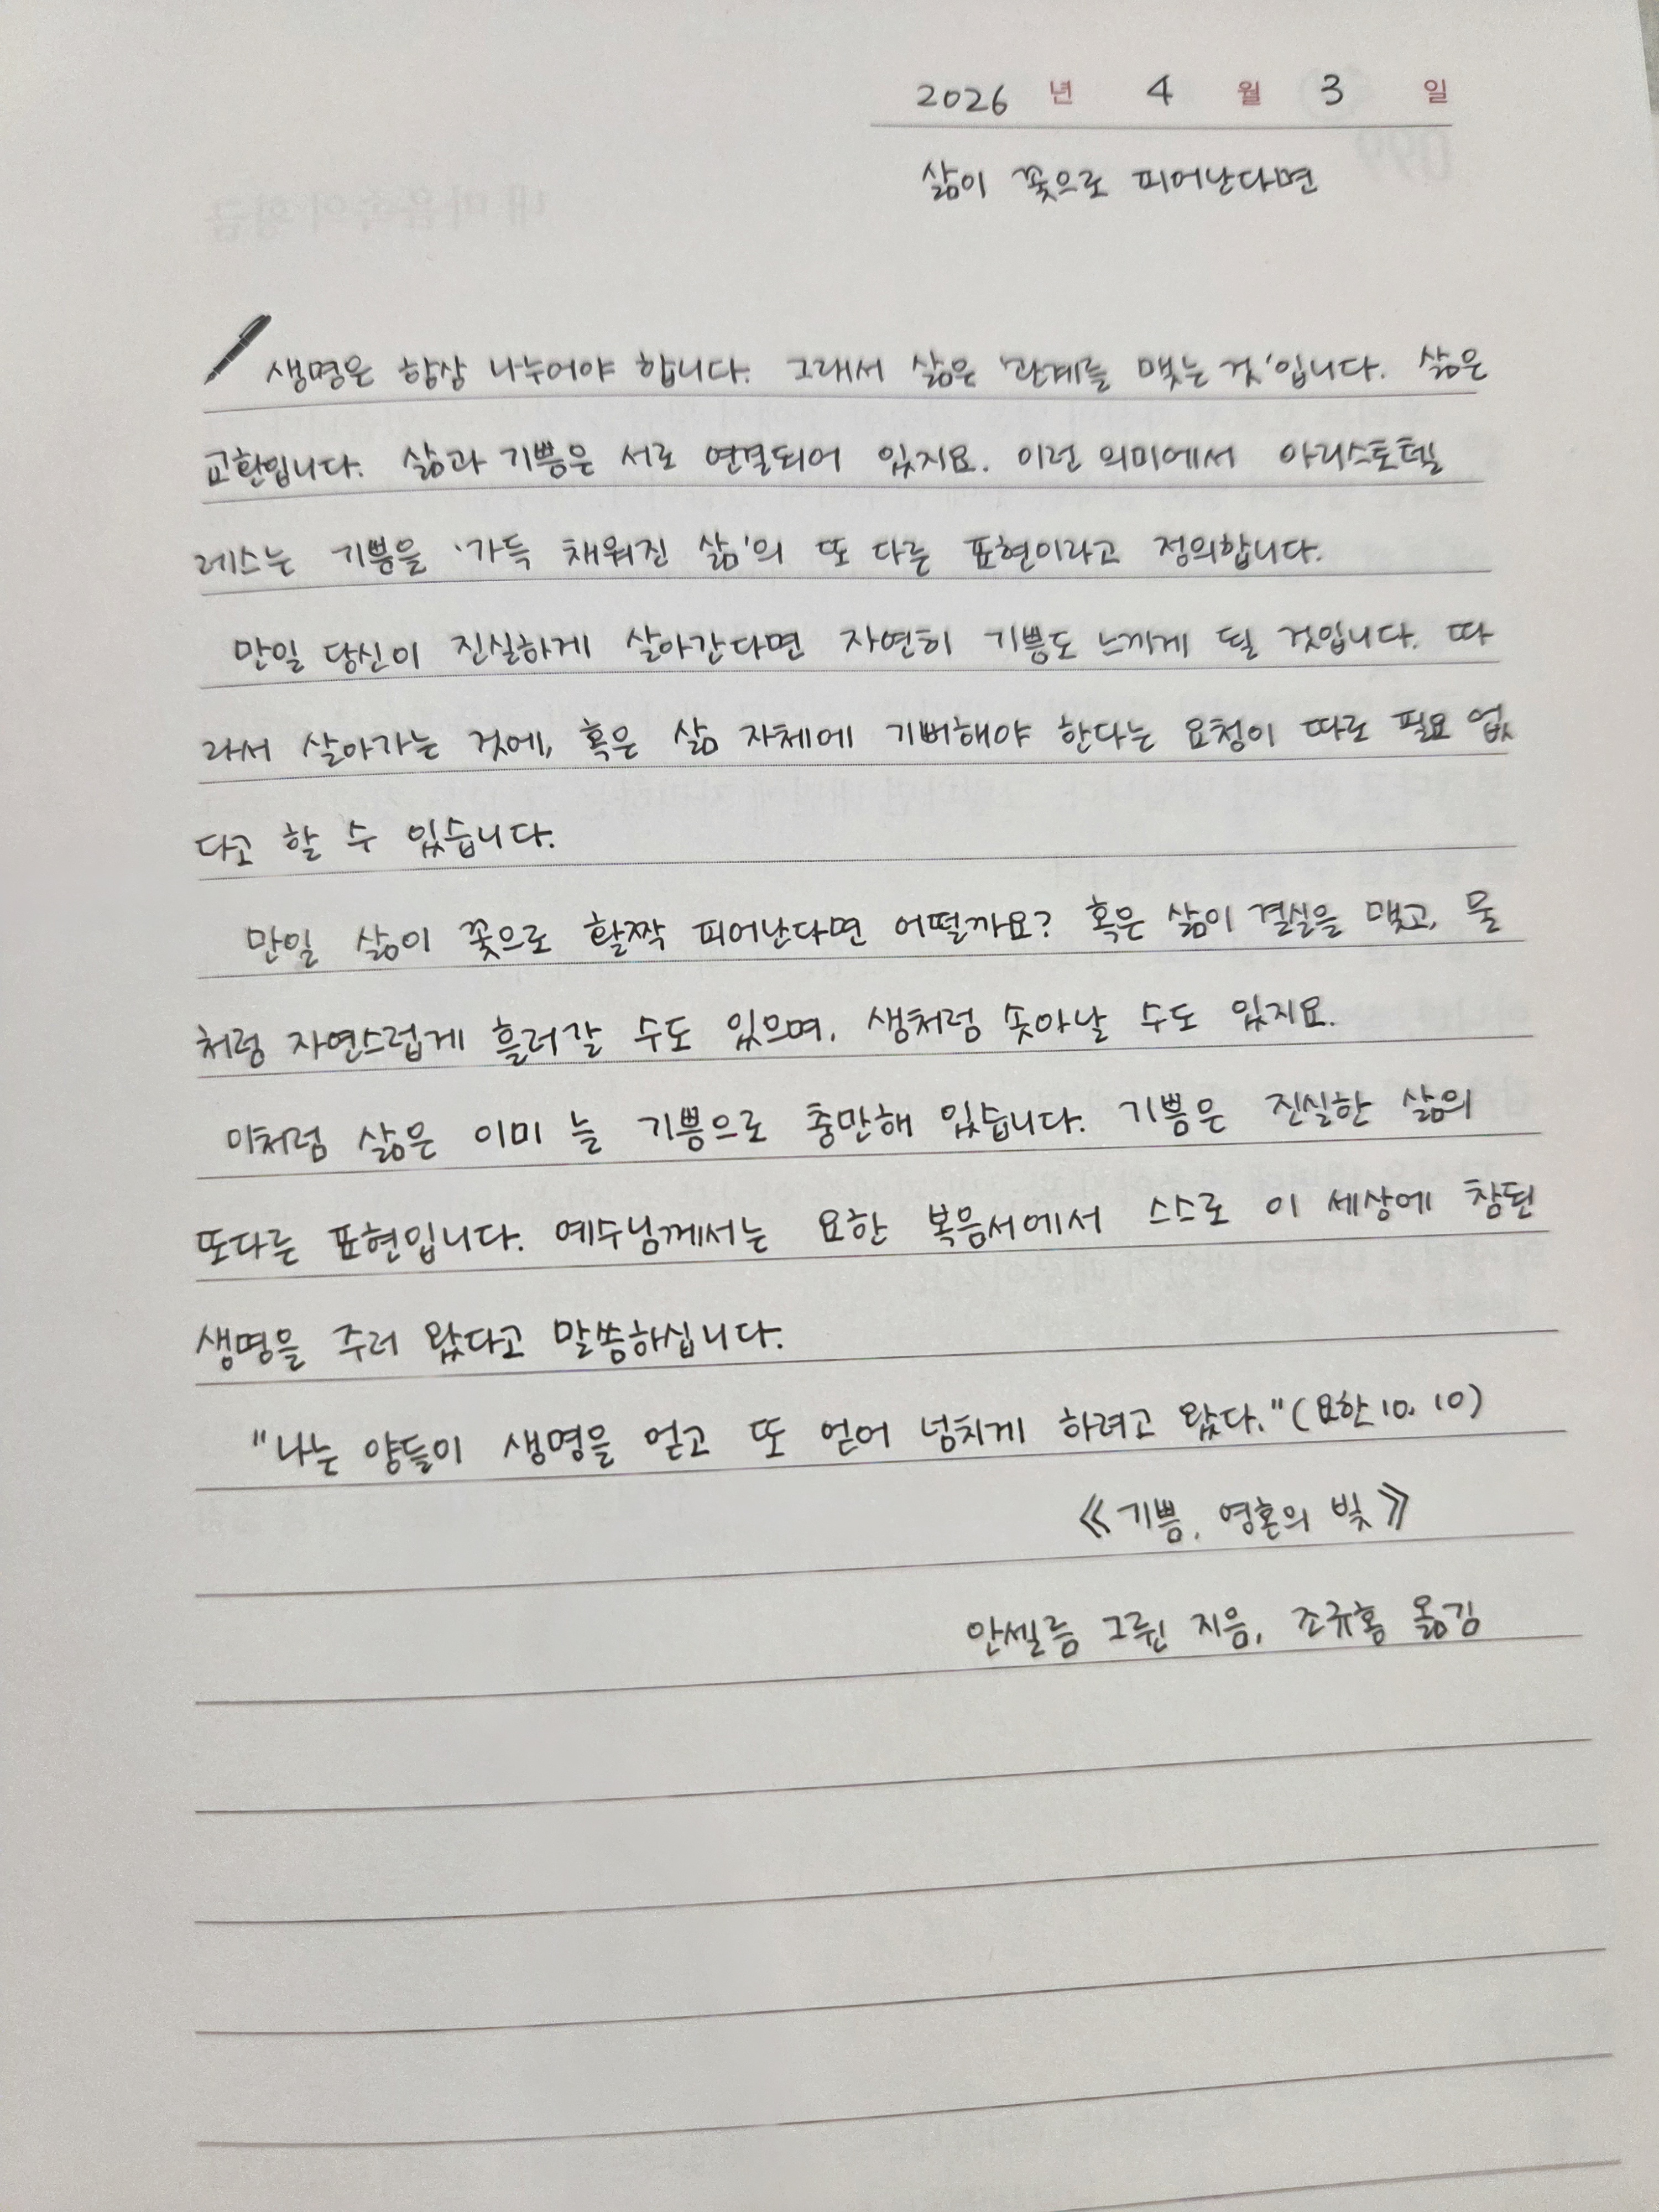 2026 년 4 월 3 일
삶이 꽃으로 피어난다면
생명은 항상 나누어야 합니다. 그래서 삶은 '관계를 맺는 것'입니다. 삶은
교환입니다. 삶과 기쁨은 서로 연결되어 있지요. 이런 의미에서 아리스토텔
레스는 기쁨을 '가득 채워진 삶'의 또 다른 표현이라고 정의합니다.
만일 당신이 진실하게 살아간다면 자연히 기쁨도 느끼게 될 것입니다. 따
라서 살아가는 것에, 혹은 삶 자체에 기뻐해야 한다는 요청이 따로 필요 없
다고 할 수 있습니다.
만일 삶이 꽃으로 활짝 피어난다면 어떨까요? 혹은 삶이 결실을 맺고, 물
처럼 자연스럽게 흘러갈 수도 있으며, 샘처럼 솟아날 수도 있지요.
이처럼 삶은 이미 늘 기쁨으로 충만해 있습니다. 기쁨은 진실한 삶의
또다른 표현입니다. 예수님께서는 요한 복음서에서 스스로 이 세상에 참된
생명을 주러 왔다고 말씀하십니다.
"나는 양들이 생명을 얻고 또 얻어 넘치게 하려고 왔다."(요한 10, 10)
《기쁨, 영혼의 빛》
안셀름 그륀 지음, 조규홍 옮김